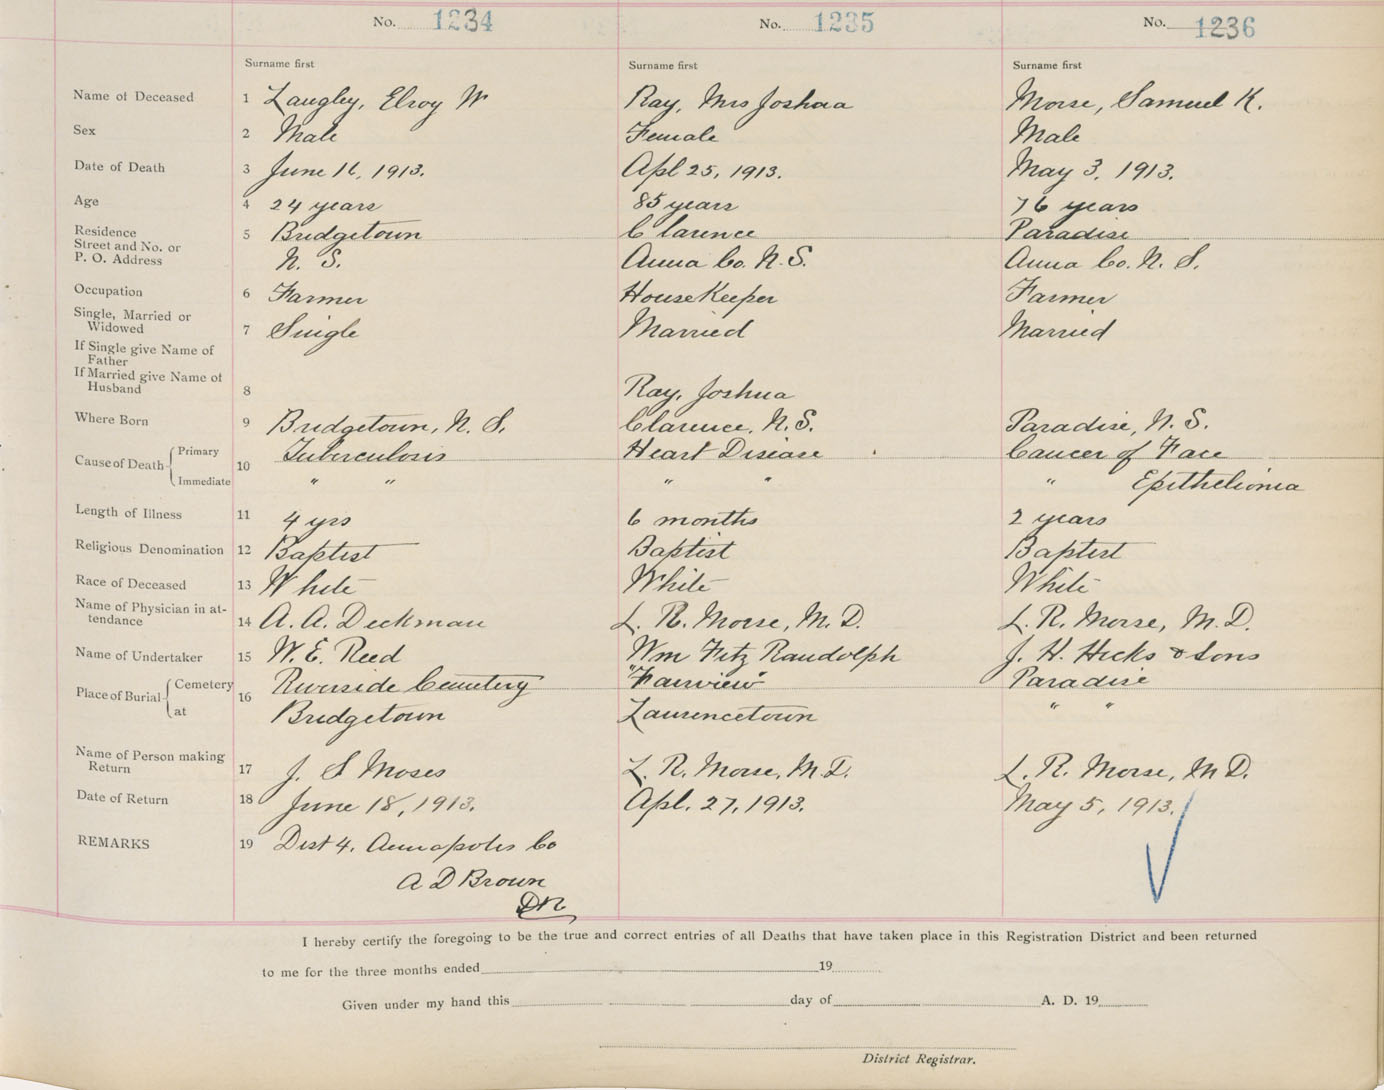 No. 1234 No. 1235 No. 1236
Surname first Surname first Surname first
Name of Deceased 1 Langley, Elroy W Ray, Mrs Joshua Morse, Samuel K.
Sex 2 Male Female Male
Date of Death 3 June 16, 1913. Apl 25, 1913. May 3, 1913.
Age 4 24 years 85 years 76 years
Residence
Street and No. or
P. O. Address
5 Bridgetown Clarence Paradise
N. S. Anna Co. N. S. Anna Co. N. S.
Occupation 6 Farmer HouseKeeper Farmer
Single, Married or
Widowed
7 Single Married Married
If Single give Name of
Father
If Married give Name of
Husband
8 Ray, Joshua
Where Born 9 Bridgetown, N. S. Clarence, N. S. Paradise, N. S.
Cause of Death Primary 10 Tuberculosis Heart Disease Cancer of Face
Immediate " " " " " Epithelioma
Length of Illness 11 4 yrs 6 months 2 years
Religious Denomination 12 Baptist Baptist Baptist
Race of Deceased 13 White White White
Name of Physician in at-
tendance
14 A. A. Deckman L. R. Morse, M. D. L. R. Morse, M. D.
Name of Undertaker 15 W. E. Reed Wm Fitz Randolph J. H. Hicks & Sons
Place of Burial Cemetery 16 Riverside Cemetery "Fairview" Paradise
at Bridgetown Laurencetown " "
Name of Person making
Return
17 J. S Moses L. R. Morse, M. D. L. R. Morse, M D.
Date of Return 18 June 18, 1913. Apl. 27, 1913. May 5, 1913.
REMARKS 19 Dist 4. Annapolis Co
A D Brown
DR
I hereby certify the foregoing to be the true and correct entries of all Deaths that have taken place in this Registration District and been returned
to me for the three months ended 19
Given under my hand this day of A. D. 19
District Registrar.